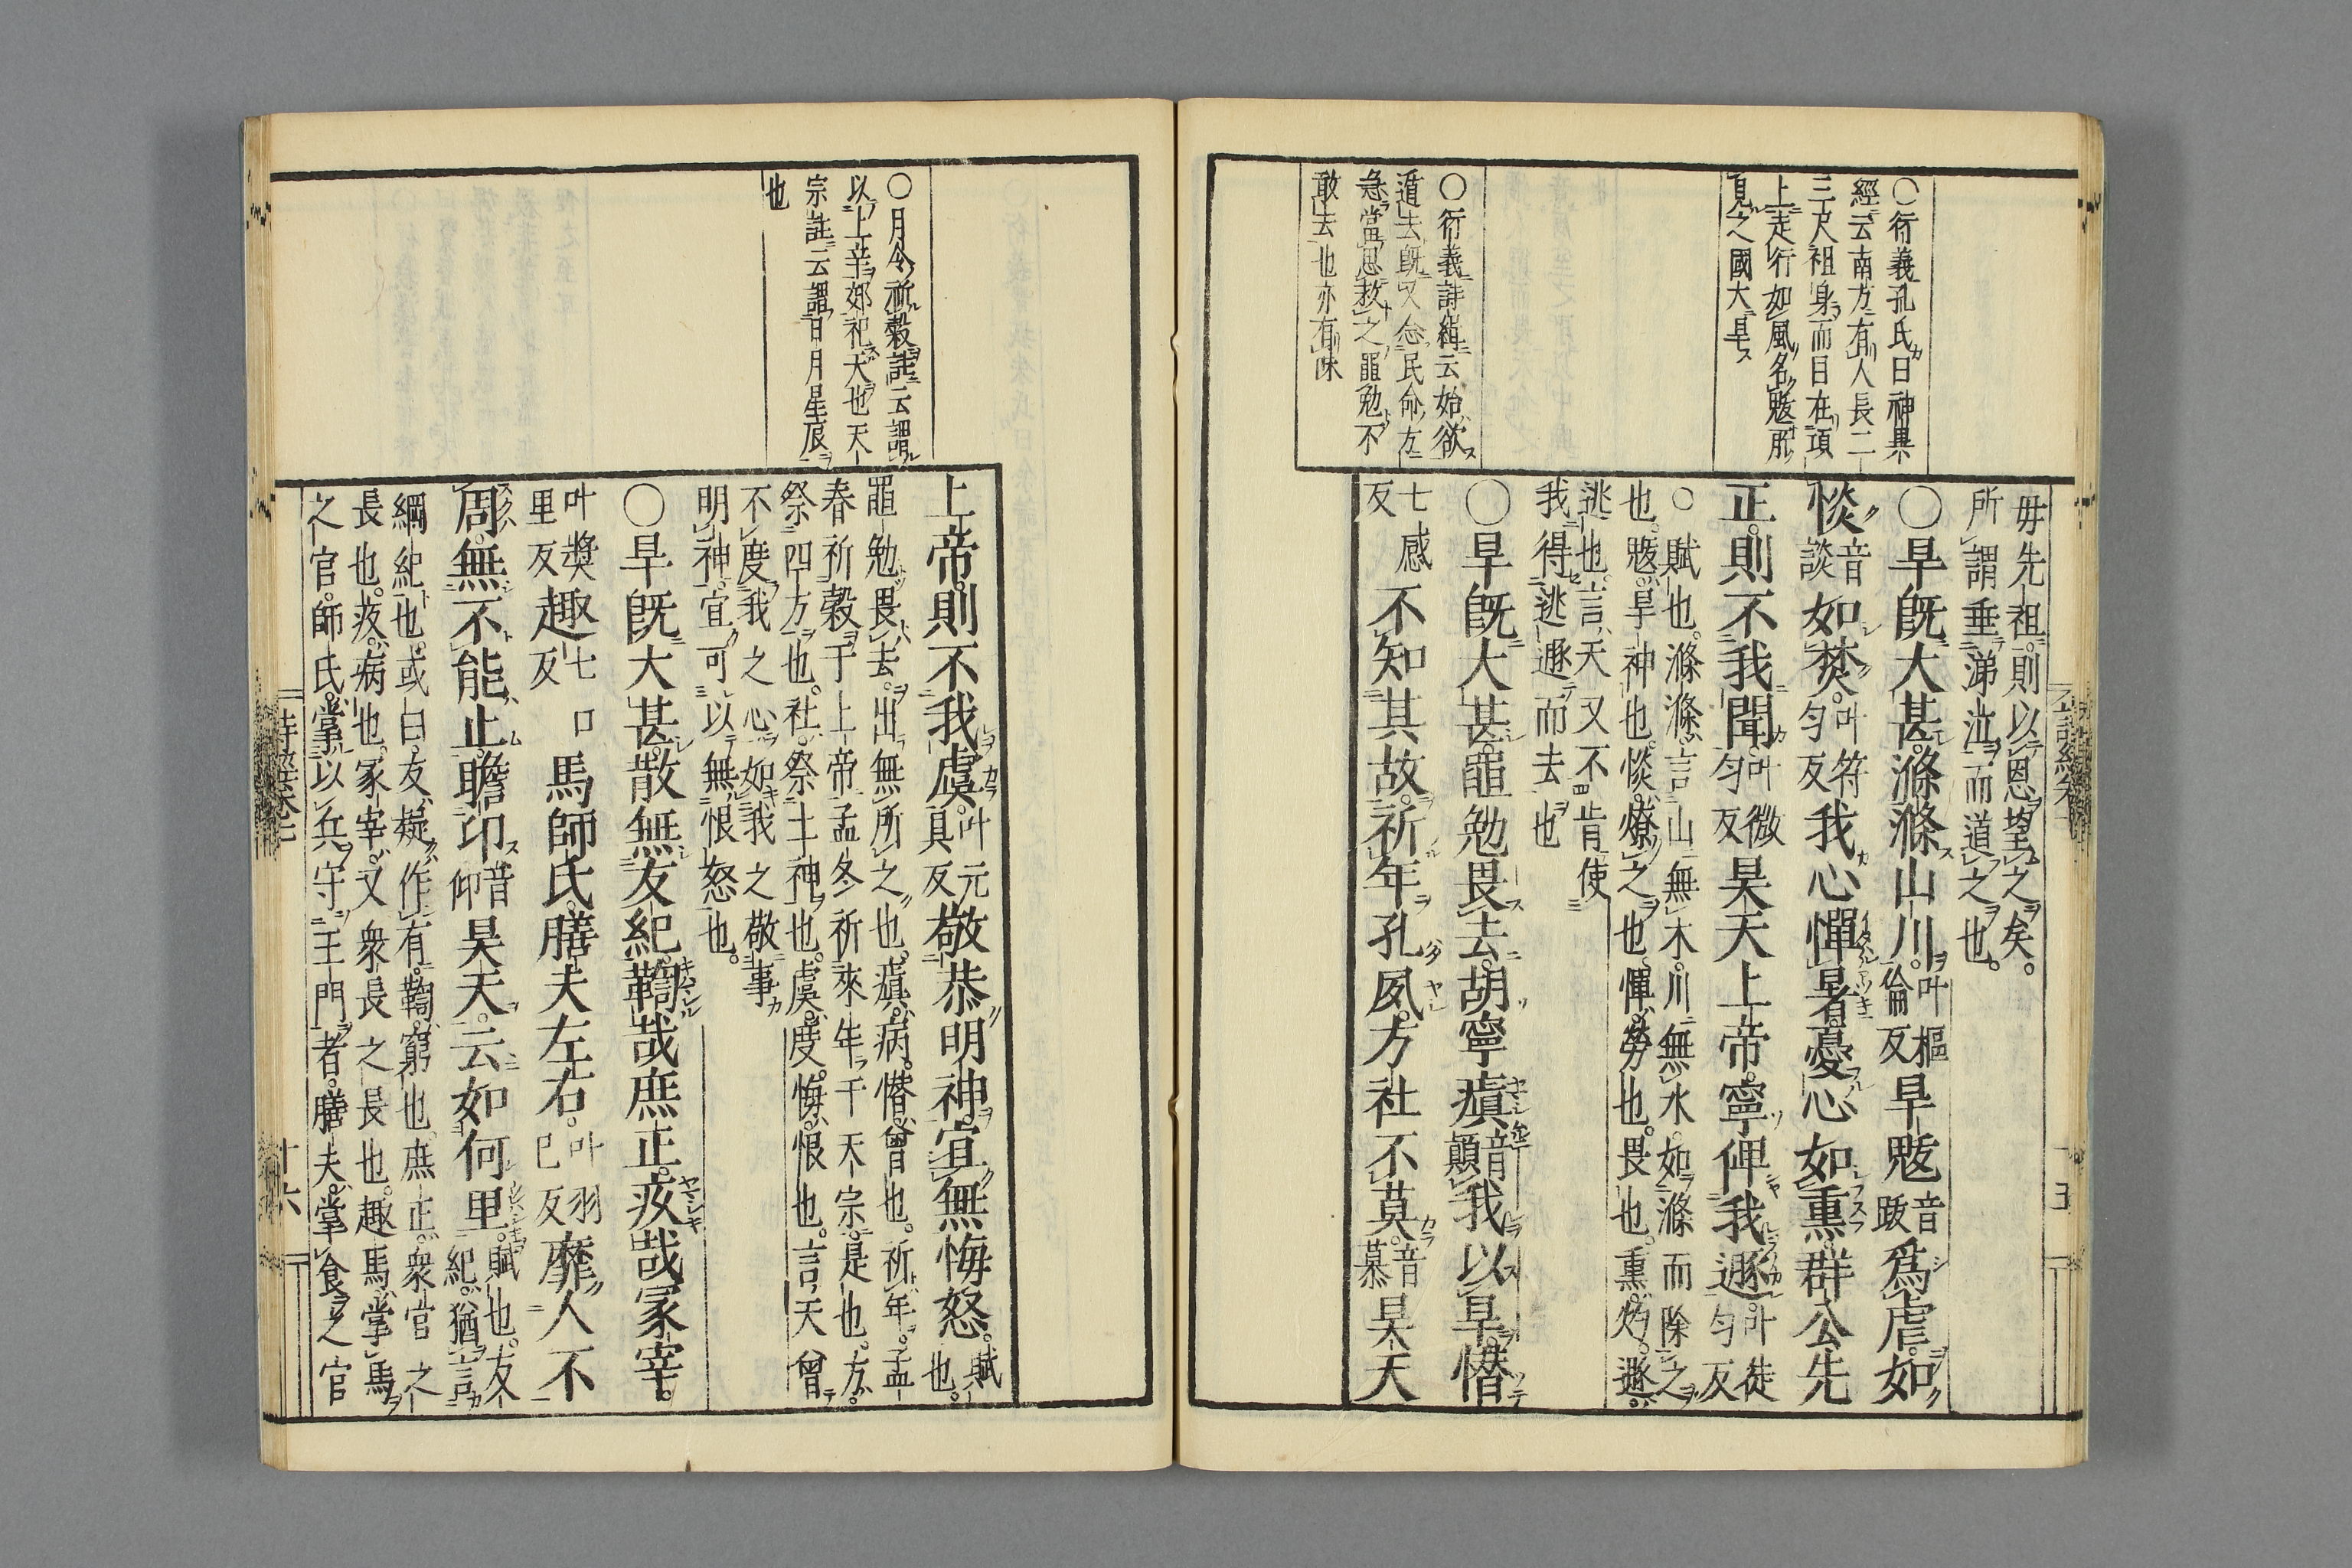 〇衍義孔氏曰神異
經云南方有人長二
三尺袒身而目在項
上走行如風名魃所
見之國大旱
〇衍義詩緝云始欲
遁去既又念民命方
急當思救之黽勉不
敢去也亦有味
毋先祖則以恩望之矣。
所謂垂涕泣而道之也。
〇旱既大甚。滌滌山川。叶樞倫反旱魃音跋爲虐。如
惔音談如焚。叶符匀反我心憚暑。憂心如熏。群公先
正。則不我聞。叶微匀反昊天上帝。寧俾我遯。叶徒匀反
〇賦也。滌滌、言山無木。川無水。如滌而除之
也。魃、旱神也。惔、燎之也。憚、勞也。畏也。熏、灼。遯、
逃也。言、天又不肯使
我得逃遯而去也
〇旱既大甚。黽勉畏去。胡寧瘨音顛我以旱。憯
七感反不知其故。祈年孔夙。方社不莫。音慕昊天
〇月令祈穀註云謂
以上辛郊祀天也天
宗註云謂日月星辰
也
上帝。則不我虞。叶元具反敬恭明神。宜無悔怒。賦也。
黽勉畏去。出無所之也。瘨、病。憯、曾也。祈年、孟
春祈穀于上帝、孟冬祈來年于天宗。是也。方、
祭四方也。社、祭土神也。虞、度。悔、恨也。言、天曾
不度我之心。如我之敬事
明神。宜可以無恨怒也。
〇旱既大甚。散無友紀。鞫哉庶正。疚哉冢宰。
叶奬里反趣七口反馬師氏。膳夫左右。叶羽己反靡人不
周。無不能止。瞻卬音仰昊天。云如何里。賦也。友紀、猶言
綱紀也。或曰。友、疑作有。鞫、窮也。庶正、衆官之
長也。疚、病也。冢宰、又衆長之長也。趣馬、掌馬
之官。師氏、掌以兵守王門者。膳夫、掌食之官
詩經卷七
十六